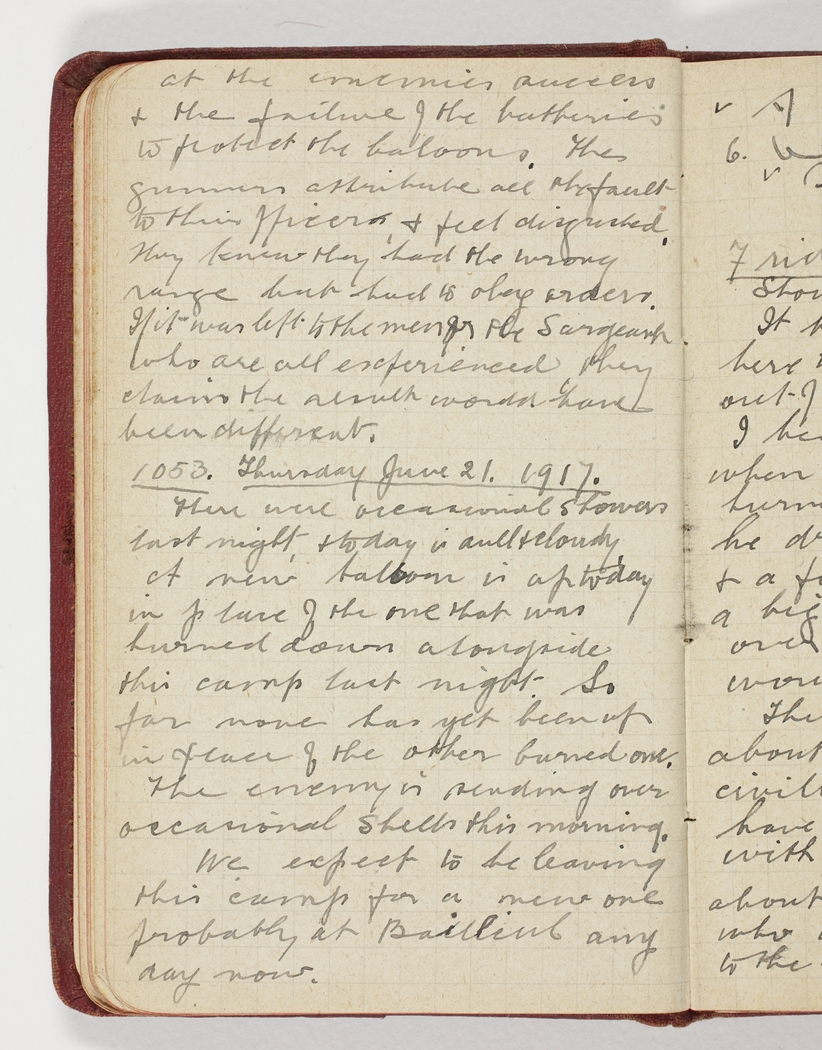 at the enemies success
& the failure of the batteries
to protect the baloons. The
gunners attribute all the fault
to their officers, & feel disgusted.
They knew they had the wrong
range but had to obey orders.
If it was left to the men or the Sargeants
who are all experienced they
claim the result would have
been different.
1053. Thursday June 21. 1917.
There were occasional showers
last night, & today is dull & cloudy.
A new balloon is up today
in place of the one that was
burned down alongside
this camp last night. So
far none has yet been up
in place of the other burned one.
The enemy is sending over
occasional shells this morning.
We expect to be leaving
this camp for a new one
probably at Baillieul any
day now.
6.
7
It
here
out of
I
when
he
& a
a big
over
The
about
have
with
about
who
to the